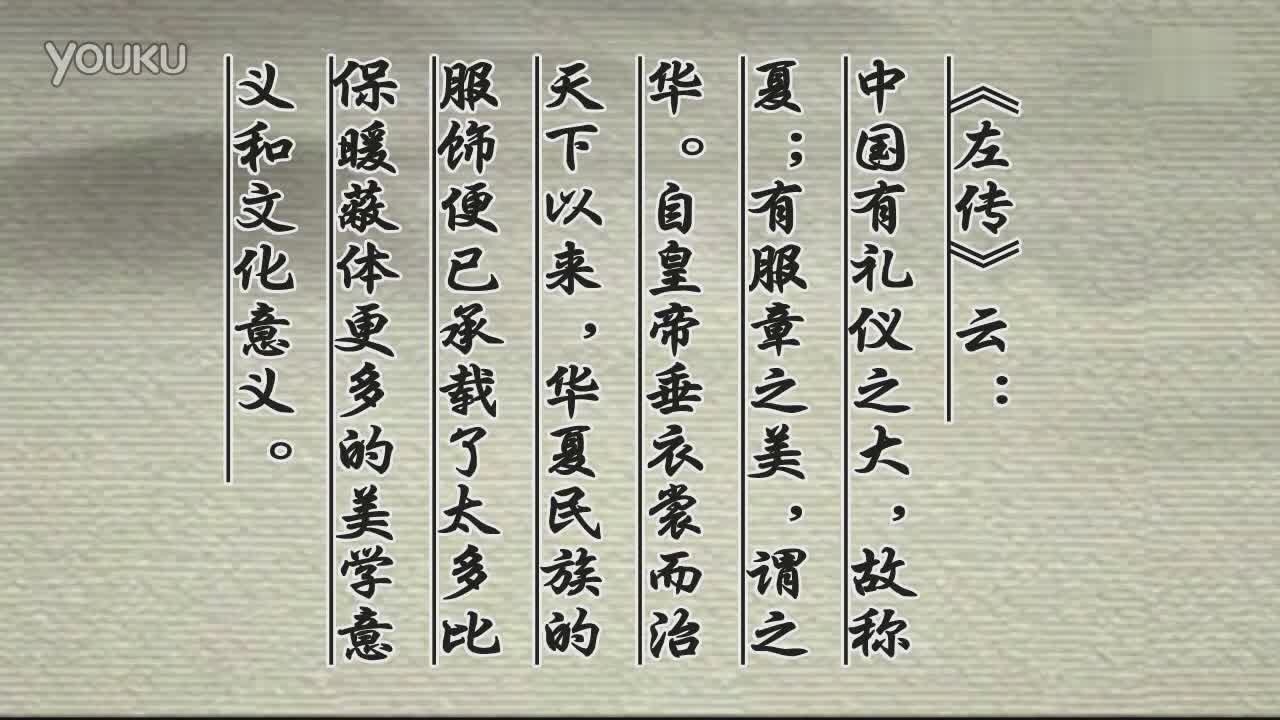 YOUKU
《左传》云：
中国有礼仪之大，故称
夏；有服章之美，谓之
华。自皇帝垂衣裳而治
天下以来，华夏民族的
服饰便已承载了太多比
保暖蔽体更多的美学意
义和文化意义。